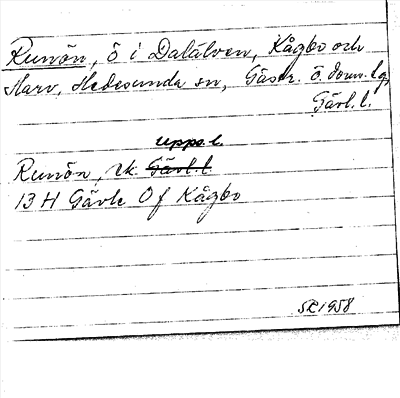 Runön, ö i Dalälven, Kågbo och
Marv, Hedesunda sn, Gästr. ö. doms.lg,
Gävl.l.
upps.l.
Runön, ek. Gävl.l.
13 H Gävle 0 f Kågbo
SR 1958